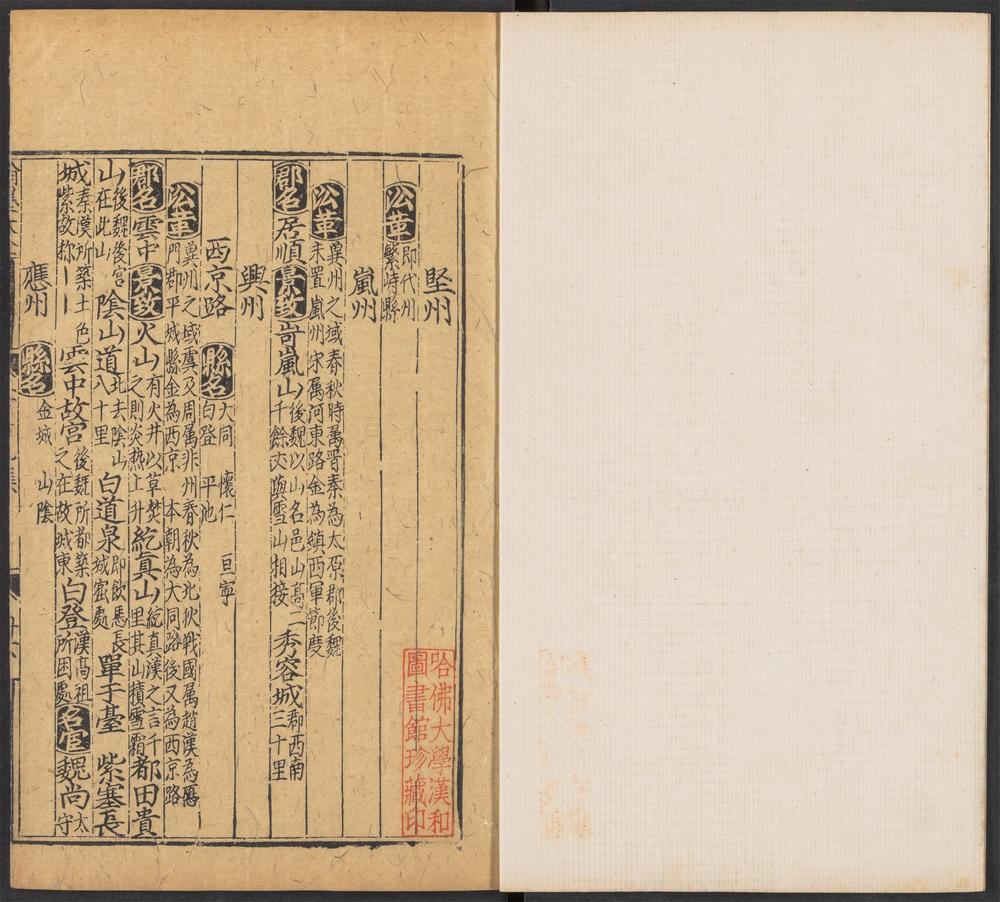 堅州
沿革 即代州繁峙縣
嵐州
沿革 冀州之域春秋時属晉秦為太原郡後魏末置嵐州宋属河東路金為鎮西軍節度
郡名 居順 景致 岢嵐山 後魏以山名邑山高二千餘丈與雪山相接 秀容城 郡西南三十里
興州
西京路 縣名 大同 懷仁 宣寧 白登 平池
沿革 冀州之域虞及周属并州春秋為北狄戰國属趙漢為鴈門郡平城縣金為西京 本朝為大同路後又為西京路
郡名 雲中 景致 火山 有火井以草焚之則炎燕上升 紇真山 紇真漢之言千里其山積雪霜 都田貴
山 後魏後宮在此山 陰山道 北去陰山八十里 白道泉 即飲馬長城窟處 單于臺 紫塞長
城 秦漢所築土色紫故称〡〡 雲中故宮 後魏所都築之在故城東 白登 漢高祖所困處 名宦 魏尚 太守
應州 縣名 金城 山陰
哈佛大學漢和
圖書館珍藏印